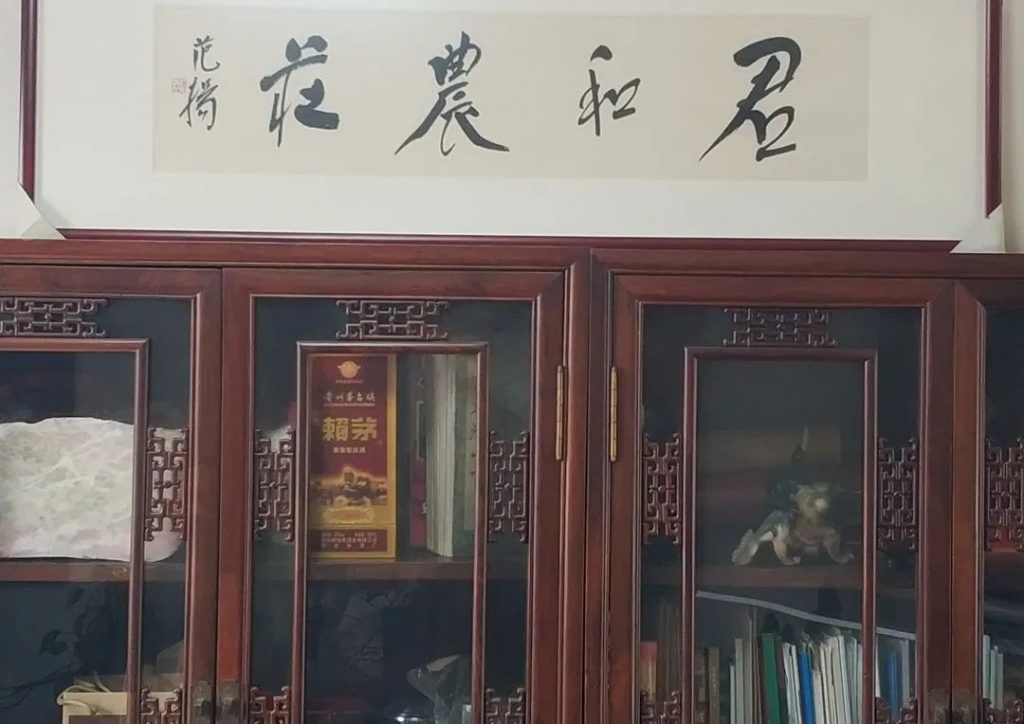 君和農莊
范揚
貴州茅台鎮
賴茅